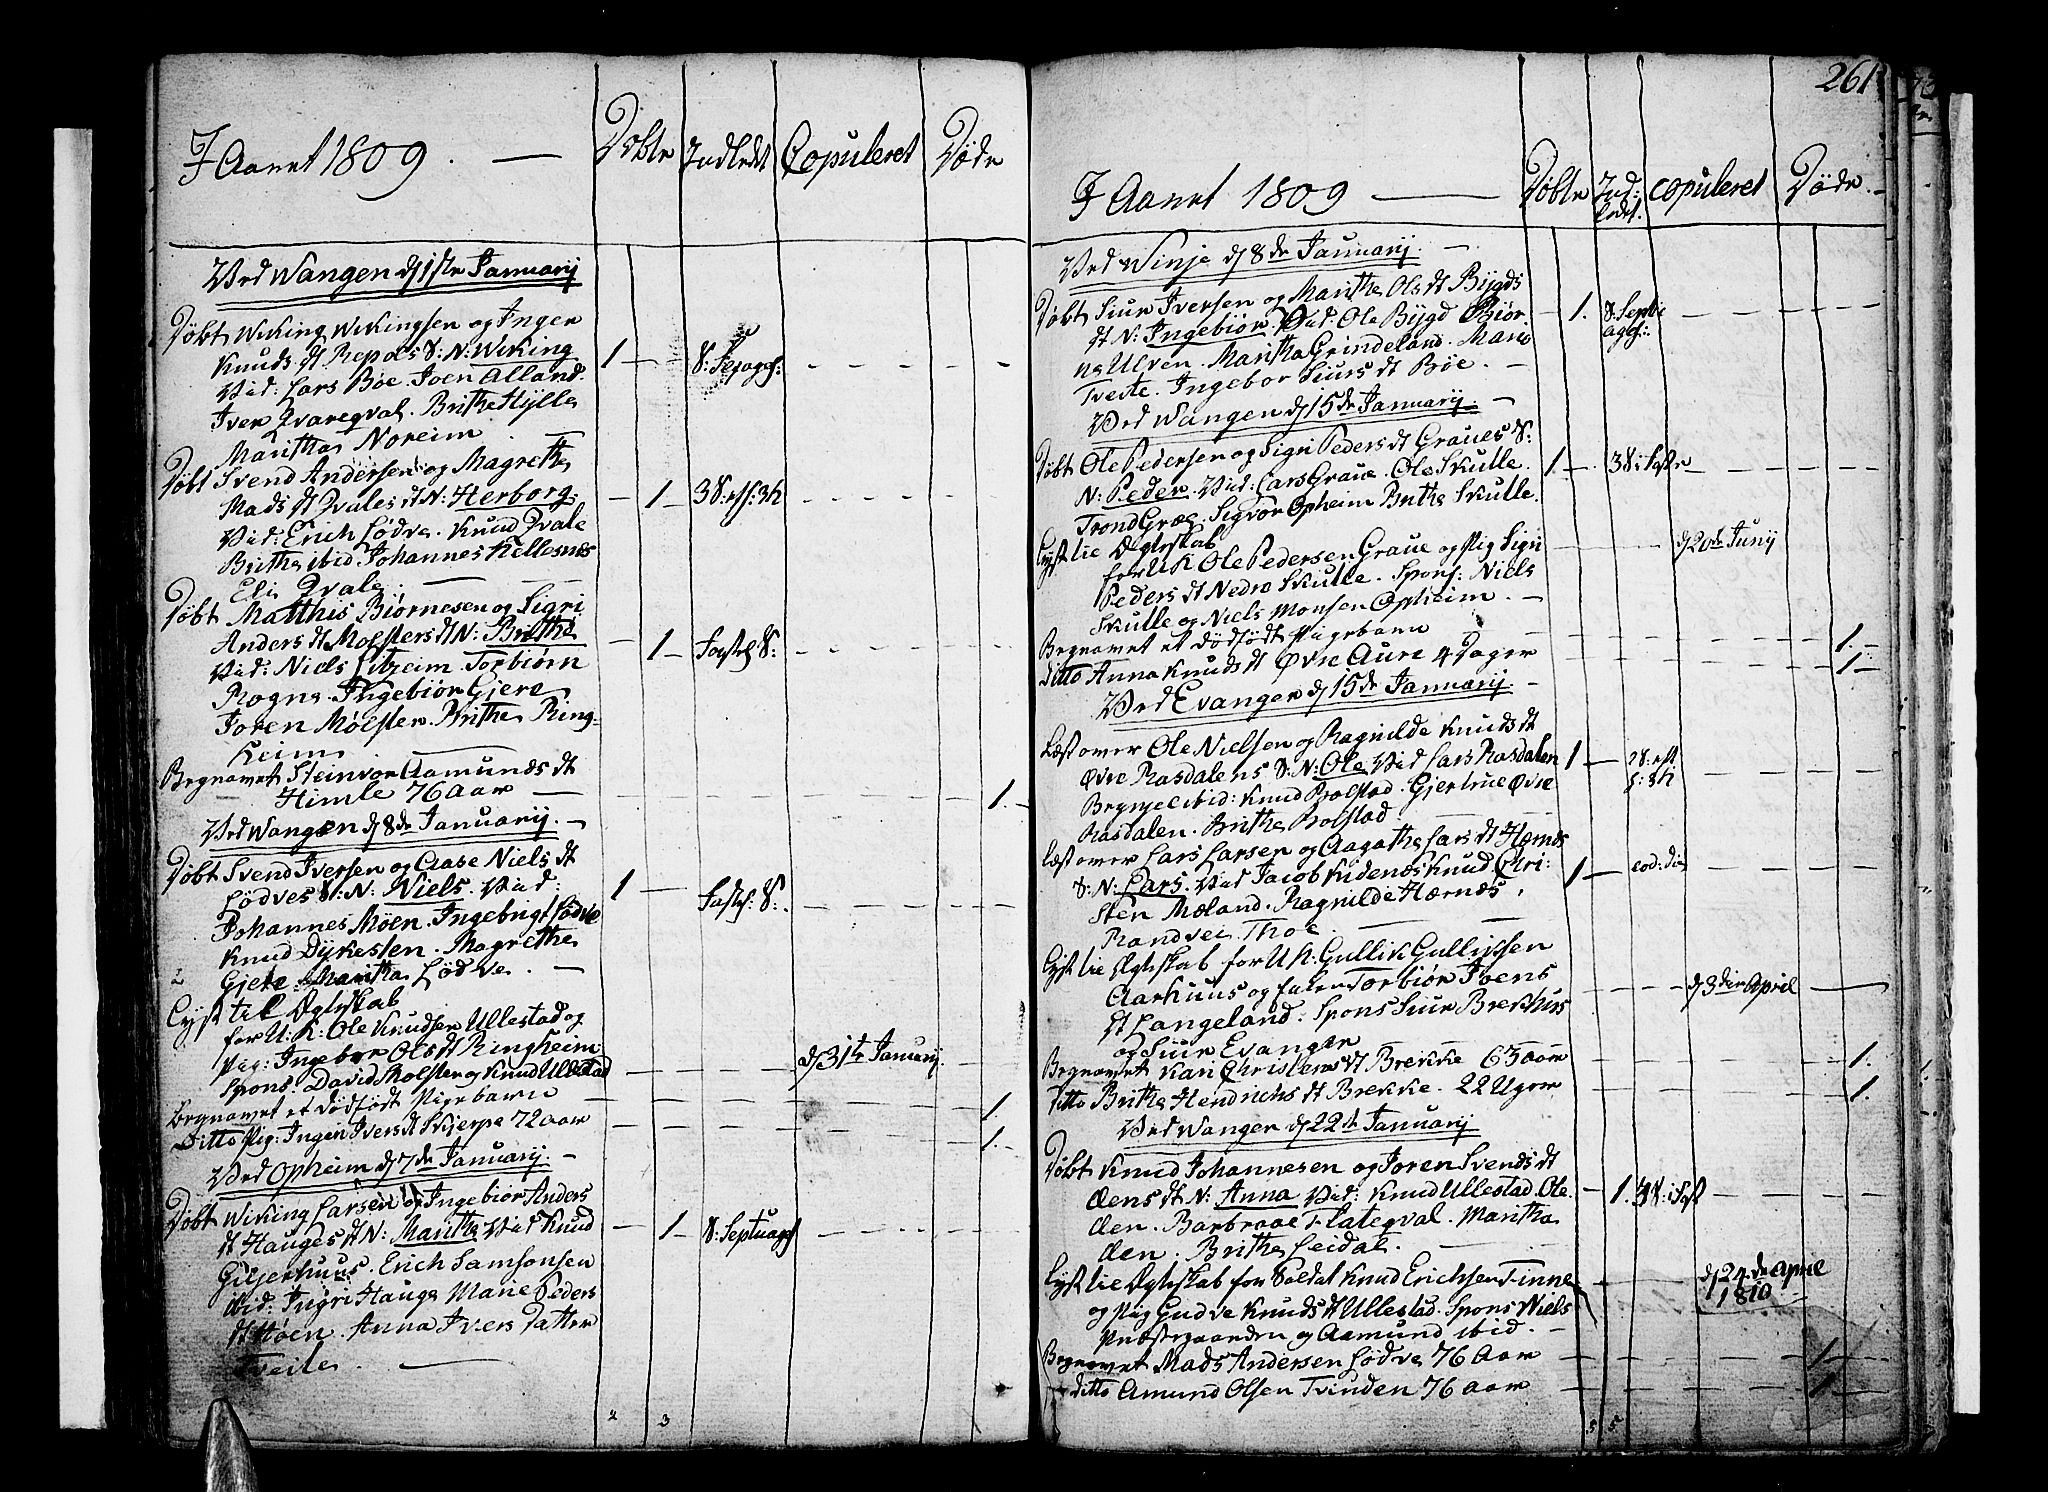 I Aaret 1809.
Døbte
Indledt
Copuleret
Døde
Ved Wangen d 1ste Januarij
Døbt Wiking Wikingsen og Inger
Knuds dt Repols S: N: Wiking
Vid: Lars Bøe. Joen Alland.
Iver Qvareqval. Brithe Hylle
Maritha Noreim.
1
S: Sexages:
Døbt Svend Andersen og Magrethe
Mads dt Qvales dt N: Herborg.
Vid: Erich Lødve. Knud Qvale
Brithe ibid Johannes Kellesnes
Eli Qvale.
1
3 S: eft: 3k
Døbt Matthis Biørnesen og Sigri
Anders dt Molsters dt N: Brithe
Vid: Niels Litzeim Torbiørn
Rogne. Ingebiør Gjere
Joren Mølster. Brithe Ring-
heim
1
Fastel S:
Begravet Steinvor Aamunds dt
Himle 76 Aar
1.
Ved Wangen d 8de Januarij.
Døbt Svend Iversen og Aase Niels dt
Lødves S: N: Niels. Vid:
Johannes Møen. Ingebrigt Lødve
Knud Dykesten. Magrethe
Gjere. Maritha Lødve.
1
Fastel: S:
Lyst til Ægteskab
for U: K: Ole Knudsen Ullestad og
Pig: Ingebor Ols dt Ringheim
Spons. David Molster og Knud Ullestad
d 31te Januarij.
Begravet et dødfødt Pigebarn
1.
Ditto Pig: Ingen Ivers dt Skierpe 72 aar
1.
Ved Opheim d 7de Januarij.
Døbt Wiking Larsen og Ingebior Anders
dt Hauges dt N: Maritha Vid Knud
Giljerhuus. Erich Samsonsen
ibid: Ingri Hauge Mane Peders
dt Høen. Anna Ivers Datter
Tveite.
1
S: Septuages
2 3
261
I Aaret 1809
Døbte
Ind:
ledt.
copuleret
Døde.
Ved Winje d 8de Januarij.
Døbt Siur Iversen og Maritha Ols dt Bygds
dt N: Ingebiør. Vid: Ole Bygd Biør
ne Ulven. Maritha Grindeland. Mari
Tveite. Ingebor Siurs dt Bøe.
1.
Ved Wangen d 15de Januarij.
Døbt Ole Pedersen og Sigri Peders dt Graues S:
N: Peder. Vid: Lars Graue. Ole Skulle.
Trond Græe. Sigvor Opheim Brithe Skulle.
1.
3 S: i Faste
Lyst til Ægteskab
for U K Ole Pedersen Graue og Pig Sigri
Peders dt Nedre Skulle. Spons: Niels
Skulle og Niels Monsen Opheim.
d 20de Junij
Begravet et dødfødt Pigebarn
1.
ditto Anna Knuds dt Øvre Aure 4 Dager
1
Ved Evanger d 15de Januarij.
Læst over Ole Nielsen og Ragnilde Knuds dt
Øvre Rasdalens S: N: Ole Vid Lars Rasdalen
Begge ibid: Knud Bolstad. Gjertrue Øvre
Rasdalen. Brithe Bolstad.
1
2 S: eft
Læst over Lars Larsen og Aagathe Lars dt Hærnes
S: N: Lars. Vid Jacob Kidenes Knud Chri:
sten Mæland. Ragnilde Hærnes.
Randvei Thoe.
1
eod: die
Lyst til Ægteskab for U K: Gullik Gulliksen
Aarhuus og Enken Torbiør Joens
dt Langeland. Spons Siur Brekhus
og Siur Evanger
d 3die April
Begravet Kari Christens dt Brekke 63 aar
1.
ditto Brithe Hendrichs dt Brekke. 22 Uger
1.
Ved Wangen d 22de Januarij
Døbt Knud Johannesen og Joren Svends dt
dens dt N: Anna Vid: Knud Ullestad Ole
den. Barbroe Flateqval. Maritha
den. Brithe Leidal.
1.
Lyst til Ægteskab for Soldat Knud Erichsen Finne
og Pig Gudve Knuds dt Ullestad. Spons Niels
Præstegaarden og Aamund ibid.
d 24de April
1810
Begravet Mads Andersen Lødve 76 Aar
1
ditto Amund Olsen Tvinden 76 aar
1
5 5